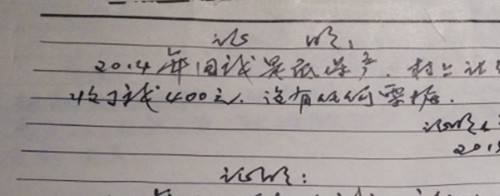 证明
2014年因我是低保户,村上
收了我400元.没有任何票据.
证明人
201
证明: